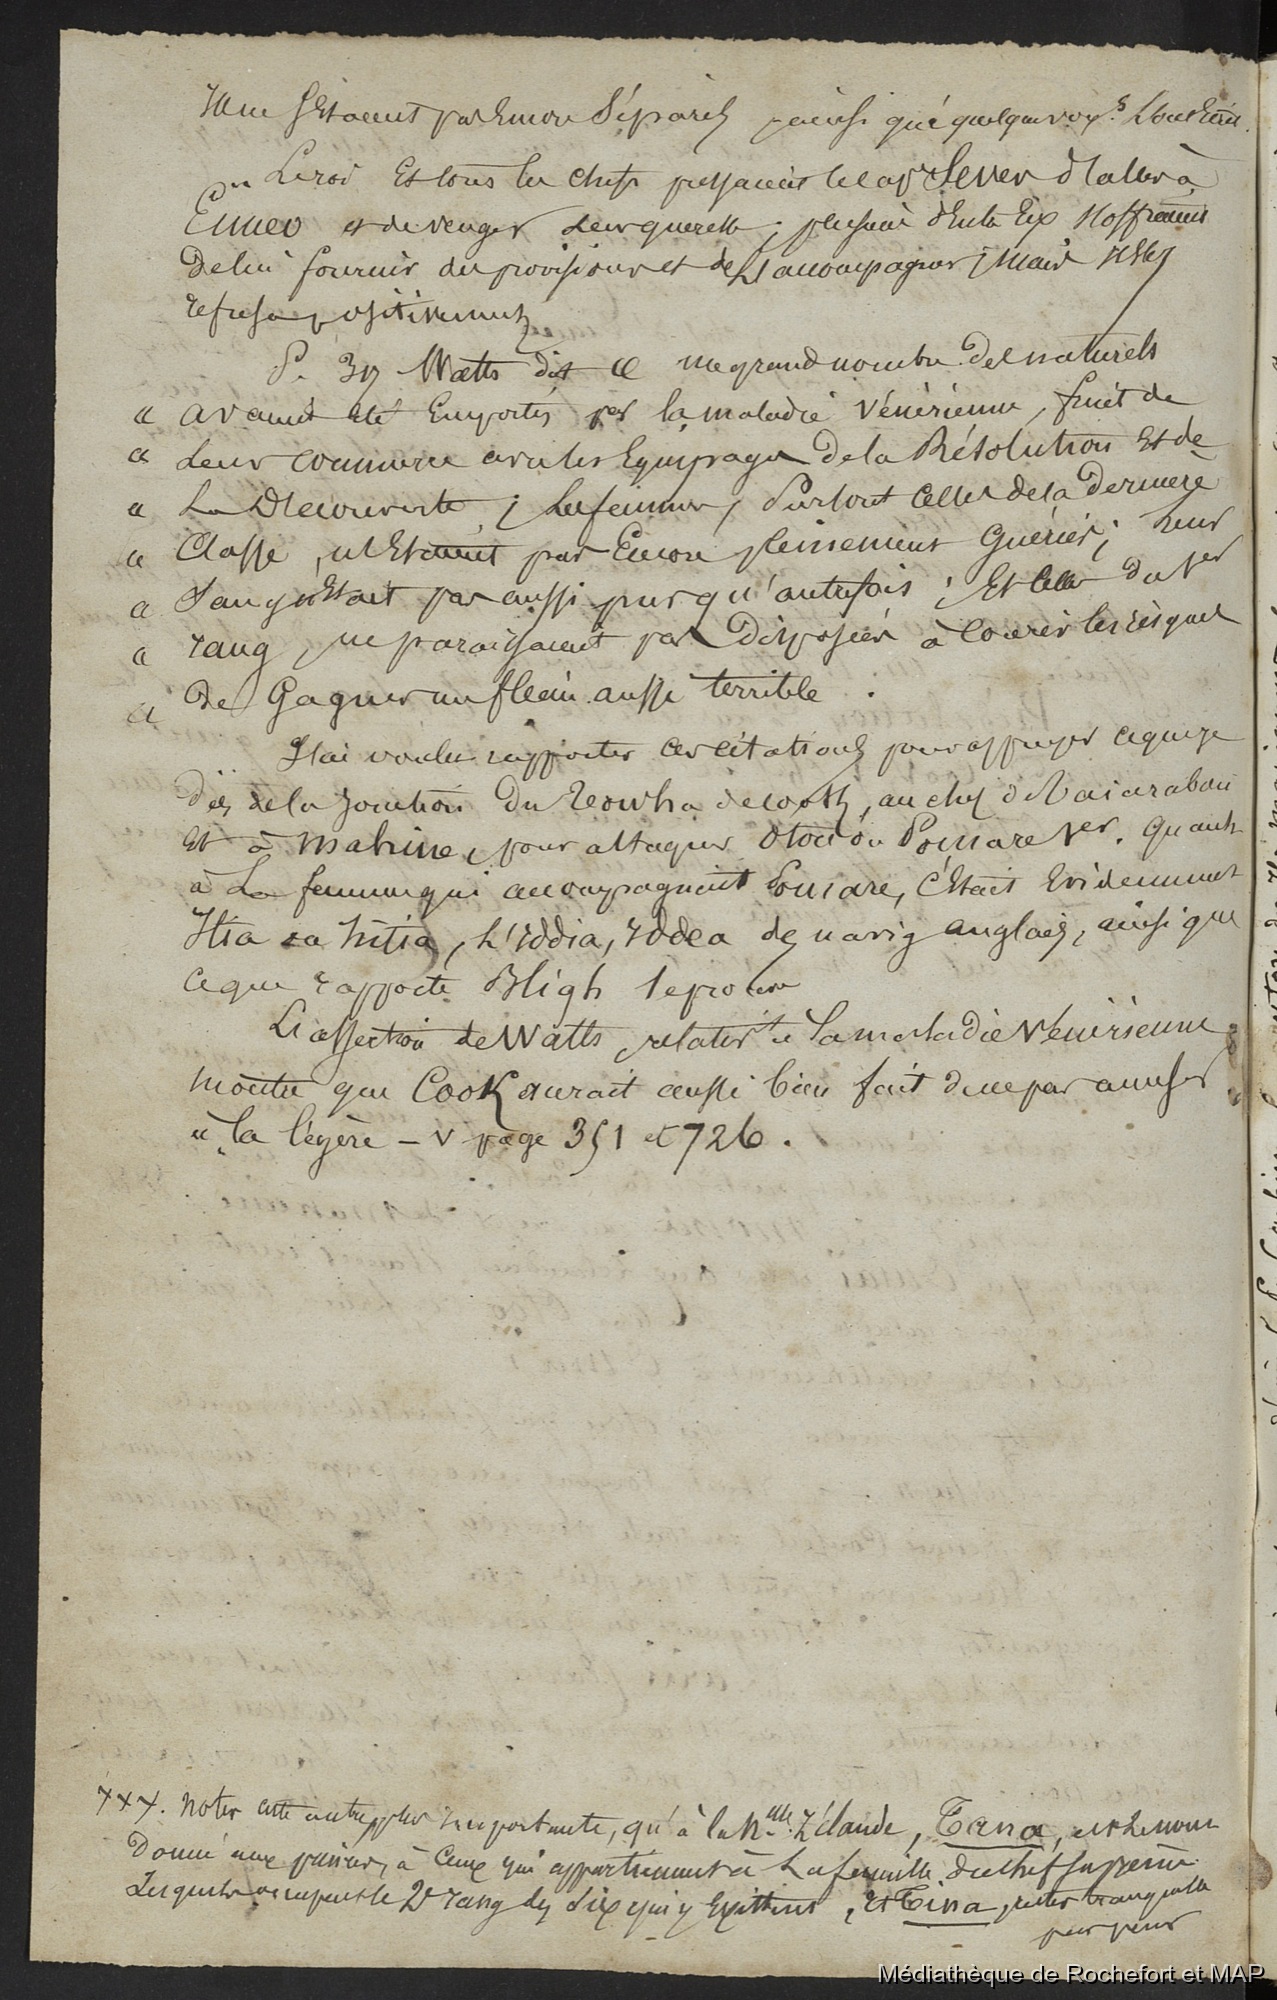 n'étaient pas Encore Séparés, ainsi que quelques
Le roi Et tous les chefs pressaient le cap Sever d'aller à
Eimeo et de venger leur querelle ; plusieurs d'entr'Eux s'offraient
De lui fournir des provisions et de L'accompagner ; Mais
refusa positivement
P. 39 Watts dit " un grand nombre de naturels
" avaient été Emportés par la maladie Vénérienne, fruit de
" Leur commerce avec les Equipages De la Résolution Et de
" La Découverte ; Les femmes, Surtout Celles de la Dernière
" Classe, n'Etaient pas Encore pleinement Guéries ; leur
" Sang n'était pas aussi pur qu'autrefois ; Et Celles Du 1er
" rang, ne paraissaient pas Disposées à Courir les risques
" De Gagner un fléau aussi terrible .
J'ai voulu rapporter ces citations pour appuyer ce que je
dis de la jonction Du Teowha de Cook, au chef d'Vaiarabou
Et à Mahine, pour attaquer Otou ou Pomare 1er. Quant
à La femme qui accompagnait Pomare, C'était Evidemment
Itia ou hitia, L'Iddia, Iddea des navig anglais, ainsi que
ce que rapporte Bligh le prouve
L'assertion de Watts, relative à la maladie Vénérienne
montre que Cook aurait aussi bien fait de ne pas
" à la légère – V page 351 et 726 .
+++. Noter cette autre plus importante, qu'à la Nlle Zélande, Tana, est le nom
Donné aux, à Ceux qui appartiennent à La famille Du chef Suprême
Lesquels occupent le 2e rang des Six qui y Existent, Et Tina,